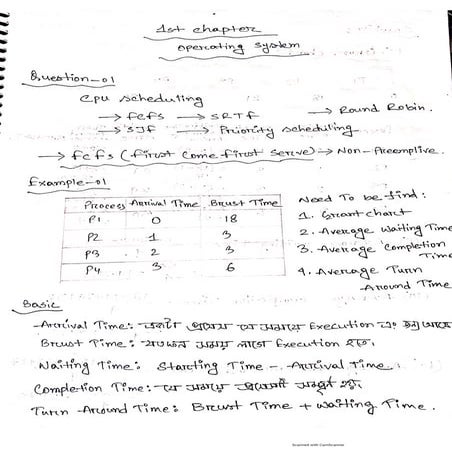 1st chapter
operating system
Question-01
Cpu scheduling
→ fcfs → SRTF → Round Robin.
→ SJF → Priority scheduling
→ fcfs (first come first serve) → Non-Preemptive.
Example-01
Process Arrival Time Brust Time
P1 0 18
P2 1 3
P3 2 3
P4 3 6
Need To be find:
1. Grant chart
2. Average Waiting Time
3. Average Completion Time
4. Average Turn Around Time
Basic
Arrival Time: একটা প্রসেস যে সময়ে Execution এর জন্য আসে
Brust Time: যতক্ষন সময় লাগে Execution হতে.
Waiting Time: Starting Time - Arrival Time.
Completion Time: যে সময়ে প্রসেসটি সম্পূর্ণ হয়.
Turn Around Time: Brust Time + Waiting Time.
Scanned with CamScanner